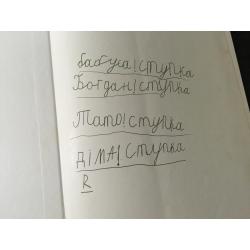 бабуса!ступка
Богдан!ступка
Тато!ступка
ДіМА!Ступка
R